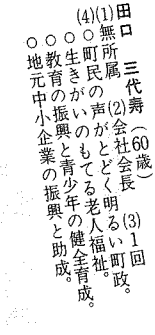 田口 三代寿(60歳)
(1)無所属 (2)会社会長 (3)1回
(4)○町民の声がとどく明るい町政。
○生きがいのもてる老人福祉。
○教育の振興と青少年の健全育成。
○地元中小企業の振興と助成。